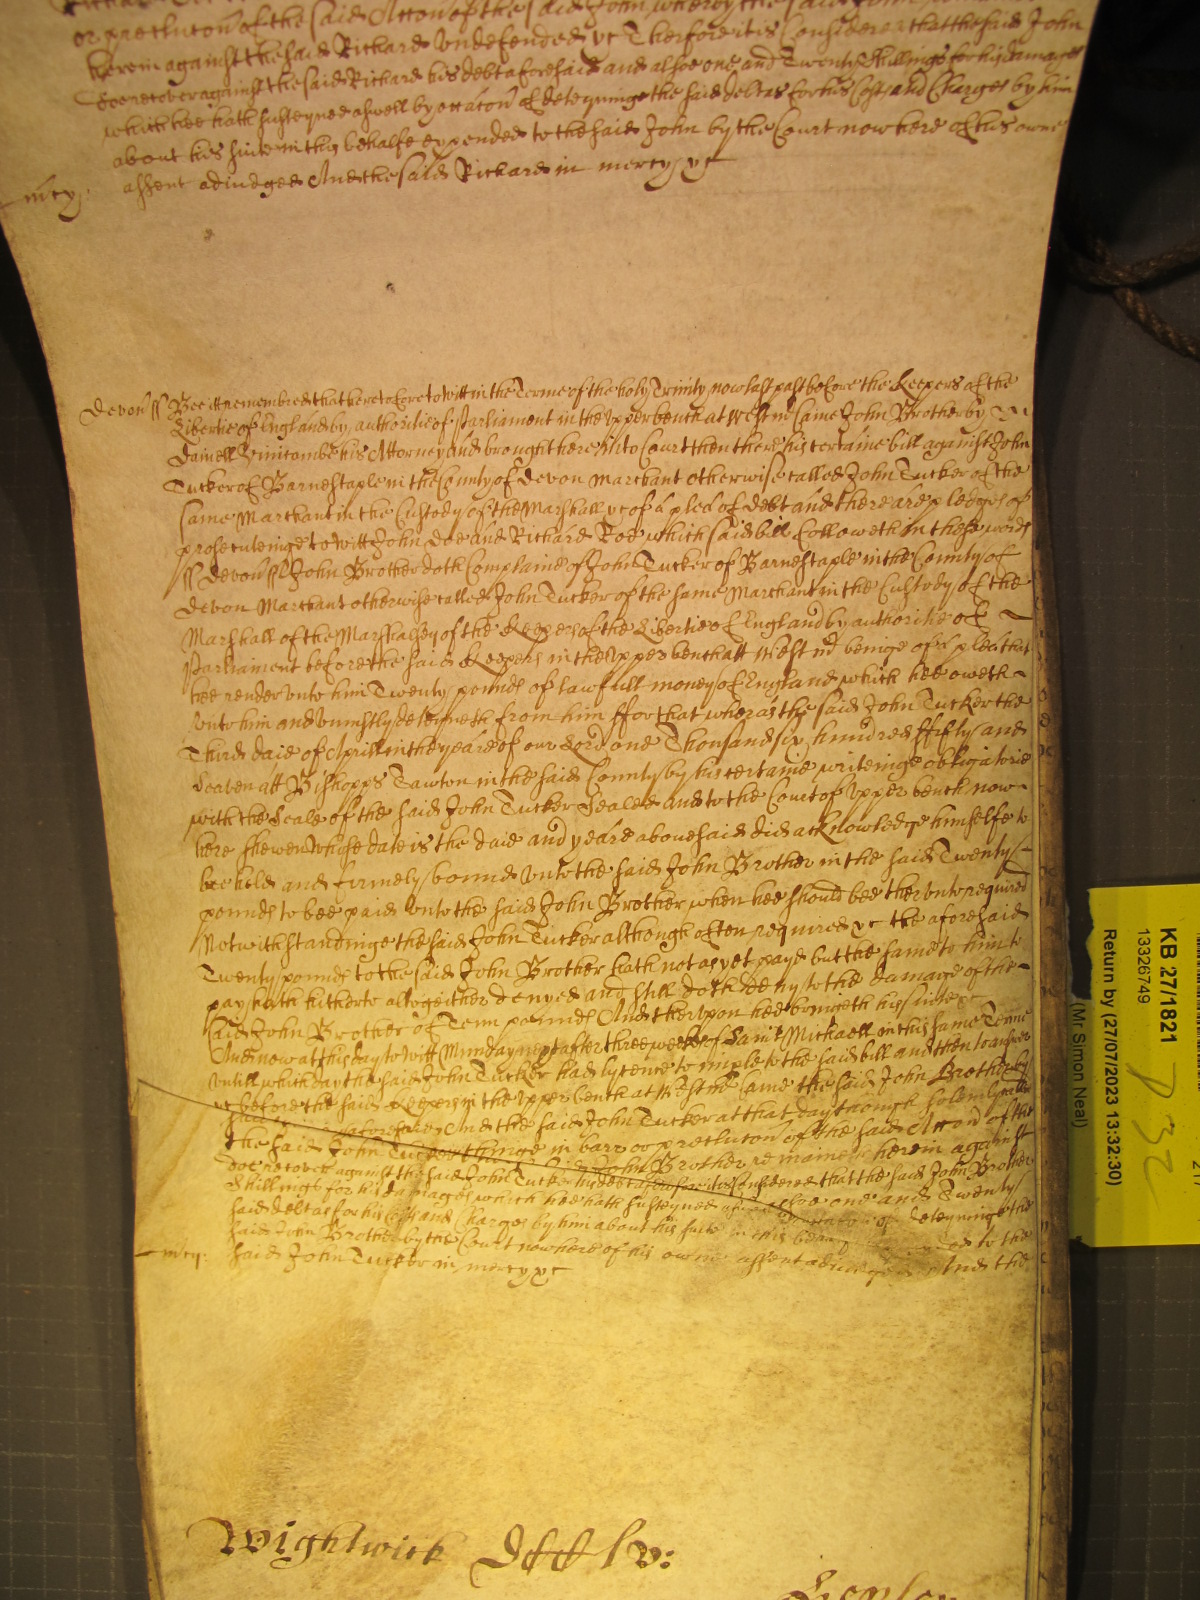 or preclusion of the said Action of the said John, wherby the said John
herein against the said Richard undefended &c Therfore it is Considered that the said John
doe recover against the said Richard his debt aforesaid and alsoe one and Twenty Shillings for his damages
which hee hath susteyned aswell by occacōn of deteyninge the said debt as for his Costs and Charges by him
about his suite in this behalfe expended to the said John by the Court now here of his owne
assent adiudged And the said Richard in mercy &c
mcy:
Devon ss Bee itt remembred that heretofore to witt in the Terme of the holy Trinity now last past before the Keepers of the
Libertie of England by authoritie of Parliament in the Upper bench at Westm̄ Came John Brother by
Daniell his Attorney And brought here into Court then there his certaine bill against John
Tucker of Barnestaple in the County of Devon Marchant otherwise called John Tucker of the
same Marchant in the Custody of the Marshall &c of a plea of debt and there are pledges of
prosecuteinge to witt John Doe and Richard Roe which said bill followeth in these words
ss Devon ss John Brother doth Complaine of John Tucker of Barnestaple in the County of
Devon Marchant otherwise called John Tucker of the same Marchant in the Custody of the
Marshall of the Marshalsey of the Keepers of the Libertie of England by authoritie of
Parliament before the said Keepers in the Upper bench att Westm̄ beinge of a plea that
hee render unto him Twenty pounds of lawfull money of England which hee oweth
unto him and uniustly deteyneth from him ffor that wheras the said John Tucker the
Third daie of Aprill in the yeare of our Lord one Thousand six hundred fifty and
seaven att Bishopps Tawton in the said County by his certaine writeinge obligatorie
with the Seale of the said John Tucker Sealed and to the Court of Upper bench now
here shewen Whose date is the daie and yeare abovesaid did acknowledge himselfe to
bee held and firmely bound unto the said John Brother in the said Twenty
pounds to bee paid unto the said John Brother when hee should bee therunto required
Notwithstandinge the said John Tucker although often required &c the aforesaid
Twenty pounds to the said John Brother hath not as yet payd but the same to him to
pay hath hitherto altogeither denyed and still doth deny to the damage of the
said John Brother of Tenn pounds And therupon hee bringeth his suite &c
And now at this day to witt Munday next after three weeks of Saint Michaell in this same Terme
untill which day the said John Tucker had lycence to imple to the said bill and then to answer
&c before the said Keepers in the Upper bench at Westm̄ Came the said John Brother by
his aforesaid And the said John Tucker at that day though solemly
the said John Tucker thinge in barr or preclusion of the said Action of the
the said John Brother remaineth herein against
doe recover against the said John Tucker his debt aforesaid Considered that the said John Brother
Shillings for his damages which hee hath susteyned alsoe one and Twenty
said debt as for his Costs and Charges by him about his suite in this behalf of deteyninge the
said John Brother by the Court now here of his owne assent adiudged to the
said John Tucker in mercy &c And the
mcy:
Wightwick
KB 27/1821
13326749
Return by (27/07/2023 13:32:30)
(Mr Simon Neal)